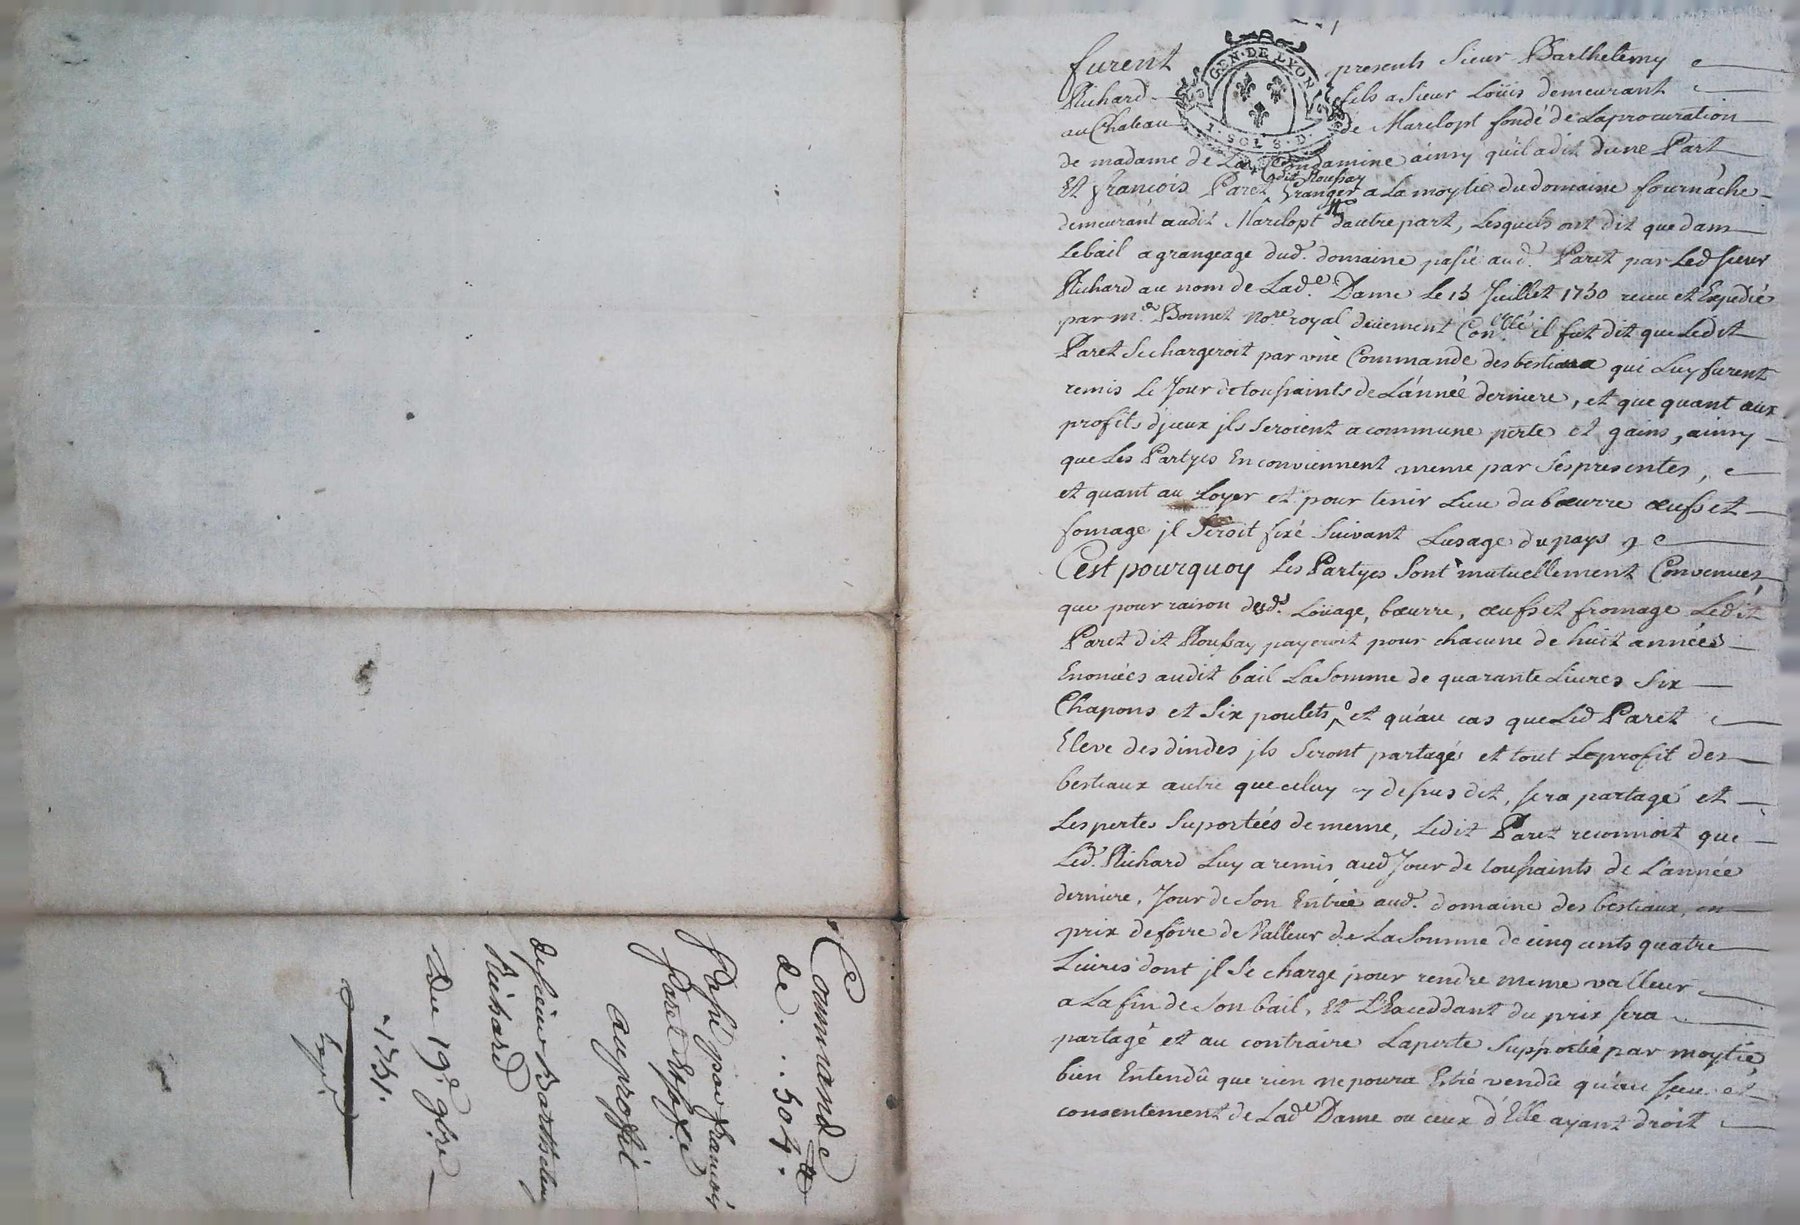 furent presents Sieur Barthelemy
Richard fils a Sieur Loüis demeurant
au Chateau de Marclopt fondé de La procuration
de madame de La Condamine ainsy quil a dit d'une Part
dit Roussay
Et françois Paret Granger a La moytie du domaine fournache
demeurant audit Marclopt d'autre part, Lesquels ont dit que dans
Le bail a grangeage dud. domaine passé aud. Paret par Led Sieur
Richard au nom de Lad.e Dame Le 15 Juillet 1730 receu et Expedié
par m.e Bonnet No.re royal deüement Con.llé il fut dit que Ledit
Paret Se chargeroit par une Commande des bestiaux qui Luy furent
remis Le Jour de toussaints de L'année derniere, et que quant aux
profits d'jceux jls Seroient a commune perte et gains, ainsy
que Les Partyes En conviennent meme par Ses presentes,
et quant au Loyer et pour tenir Lieu du bœurre œufs et
fomage jl Seroit fixé Suivant Lusage du pays,
C'est pourquoy Les Partyes Sont mutuellement Convenües
que pour raison dud. Loüage, bœurre, œufs et fromage Ledit
Paret dit Roussay payeroit pour chacune de huit années
Enoncées audit bail La Somme de quarante Livres Six
Chapons et Six poulets, et qu'au cas que Led Paret
Eleve des dindes jls Seront partagés et tout Le profit des
bestiaux autre que celuy cy dessus dit, sera partagé et
Les pertes Suportées de meme, Ledit Paret reconnoit que
Led. Richard Luy a remis aud Jour de toussaints de L'année
derniere, Jour de Son Entrée aud. domaine des bestiaux, en
prix de foire de Valleur de La Somme de cinq cents quatre
Livres dont jl Se charge pour rendre meme valleur
a La fin de Son bail, Et L'Exceddant du prix sera
partagé et au contraire La perte Supportée par moytié,
bien Entendû que rien ne poura Estre vendû qu'au sceu et
consentement de Lad.e Dame ou ceux d'Elle ayant droit
GEN. DE LYON
1. SOL 8. D.
Commande
de .. 504.
passé par francois
paret
au profit
de sieur Barthelemy
Richard
Du 19.e
1731.